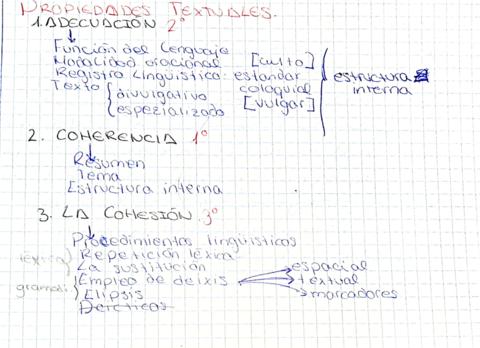 PROPIEDADES TEXTUALES.
1. ADECUACIÓN 2º
Función del Lenguaje
Modalidad oracional [culto]
Registro Lingüístico: estandar
coloquial
Texto { divulgativo [vulgar]
espezializado
estructura interna
2. COHERENCIA 1º
Resumen
Tema
Estructura interna
3. LA COHESIÓN. 3º
Procedimientos lingüísticos
Repetición léxica
La sustitución
Empleo de deixis
espacial
textual
marcadores
Elipsis